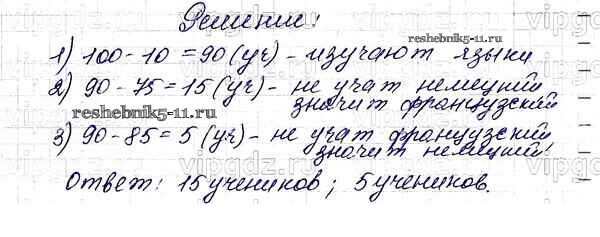 Решение!
reshebnik5-11.ru
1) 100-10=90 (уч) - изучают языки
2) 90-75=15 (уч) - не учат немецкий
значит французский
reshebnik5-11.ru
3) 90-85=5 (уч) - не учат французский
значит немецкий!
Ответ: 15 учеников; 5 учеников.
vipgdz.ru